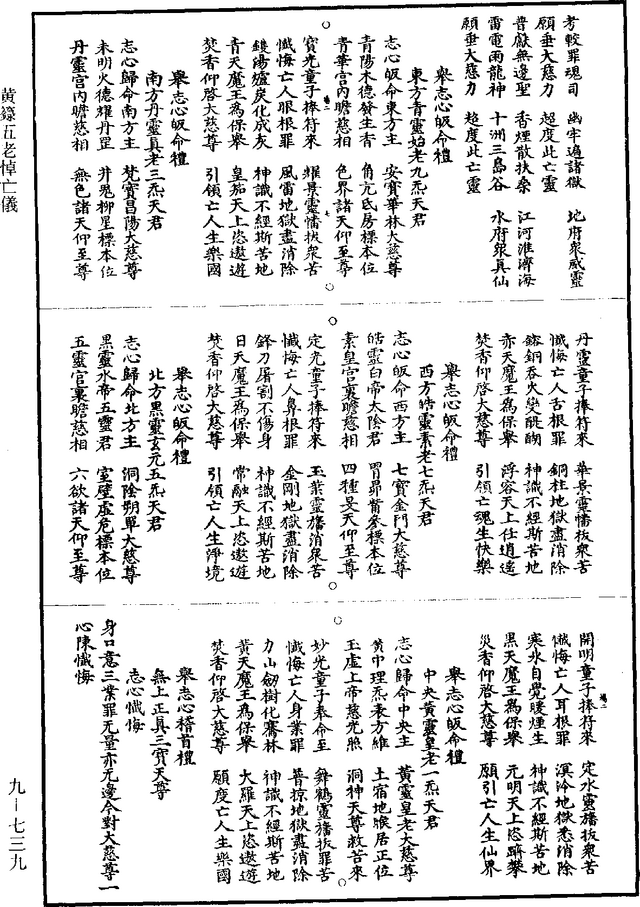 考較罪魂司　幽牢過諸獄　地府衆威靈
願垂大慈力　超度此亡靈
普獻無邊聖　香煙散扶桑　江河淮濟海
雷電雨龍神　十洲三島谷　水府衆真仙
願垂大慈力　超度此亡靈
舉志心皈命禮
東方青靈始老九炁天君
志心皈命東方主　安寶華林大慈尊
青陽木德發生君　角亢氐房標本位
青華宮內瞻慈相　色界諸天仰至尊
寶光童子捧符來　耀景靈幡拔衆苦
懺悔亡人眼根罪　風雷地獄盡消除
鑊湯爐炭化成灰　神識不經斯苦地
青天魔王為保舉　皇笳天上恣遨遊
焚香仰啓大慈尊　引領亡人生樂國
舉志心皈命禮
南方丹靈真老三炁天君
志心歸命南方主　梵寶昌陽大慈尊
朱明火德耀丹罡　井鬼柳星標本位
丹靈宮內瞻慈相　無色諸天仰至尊
丹靈童子捧符來　華景靈幡拔衆苦
懺悔亡人舌根罪　銅柱地獄盡消除
鎔銅吞火變醍醐　神識不經斯苦地
赤天魔王為保舉　浮容天上任逍遙
焚香仰啓大慈尊　引領亡魂生快樂
舉志心皈命禮
西方皓靈素老七炁天君
志心皈命西方主　七寶金門大慈尊
皓靈白帝太陰君　胃昴觜參標本位
素皇宮裏瞻慈相　四種旻天仰至尊
定光童子捧符來　玉葉靈旛消衆苦
懺悔亡人鼻根罪　金剛地獄盡消除
鋒刀屠割不傷身　神識不經斯苦地
日天魔王為保舉　常融天上恣遨遊
焚香仰啓大慈尊　引領亡人生淨境
舉志心皈命禮
北方黑靈玄元五炁天君
志心歸命北方主　洞陰朔單大慈尊
黑靈水帝五靈君　室壁虛危標本位
五靈宮裏瞻慈相　六欲諸天仰至尊
開明童子捧符來　定水靈旛拔衆苦
懺悔亡人耳根罪　溟泠地獄悉消除
寒氷自覺暖煙生　神識不經斯苦地
黑天魔王為保舉　元明天上恣躋攀
災香仰啓大慈尊　願引亡人生仙界
舉志心皈命禮
中央黃靈皇老一炁天君
志心歸命中央主　黃靈皇老大慈尊
黃中理炁衰方維　土宿地候居正位
玉虛上帝慈光照　洞神天尊救苦來
妙光童子奉命至　舞鶴靈旛拔罪苦
懺悔亡人身業罪　普掠地獄盡消除
力山劒樹化騫林　神識不經斯苦地
黃天魔王為保舉　大羅天上恣遨遊
焚香仰啓大慈尊　願度亡人生樂國
舉志心稽首禮
無上正真三寶天尊
志心懺悔
身口意三業罪无量亦无邊今對大慈尊一
心陳懺悔
黃籙五老悼亡儀
九—七三九